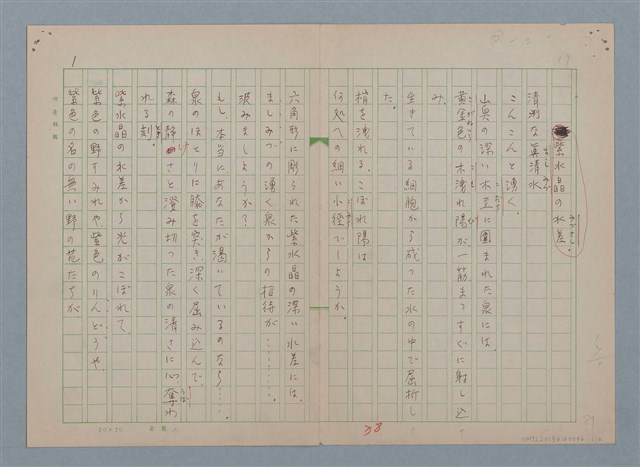 紫水晶の水差
清洌な真清水
こんこんと湧く。
山奥の深い木立に囲まれた泉には、
黄金色の木洩れ陽が一筋まっすぐに射し込
み、
生きている細胞から成った水の中で屈折し
た。
梢を洩れる、こぼれ陽は
何処への細い小径でしょうか。
六角形に彫られた紫水晶の深い水差には、
ましみづの湧く泉からの招待が…………
汲みましょうか?
もし、本当にあなたが渇いているのなら……
泉のほとりに膝を突き、深く屈み込んで、
森の静けさと澄み切った泉の清さに心奪わ
れる刻。
紫水晶の水差から光がこぼれて、
紫色の野すみれや、紫色のりんどうや、
紫色の名の無い野の花たちが、
1
38
20×20